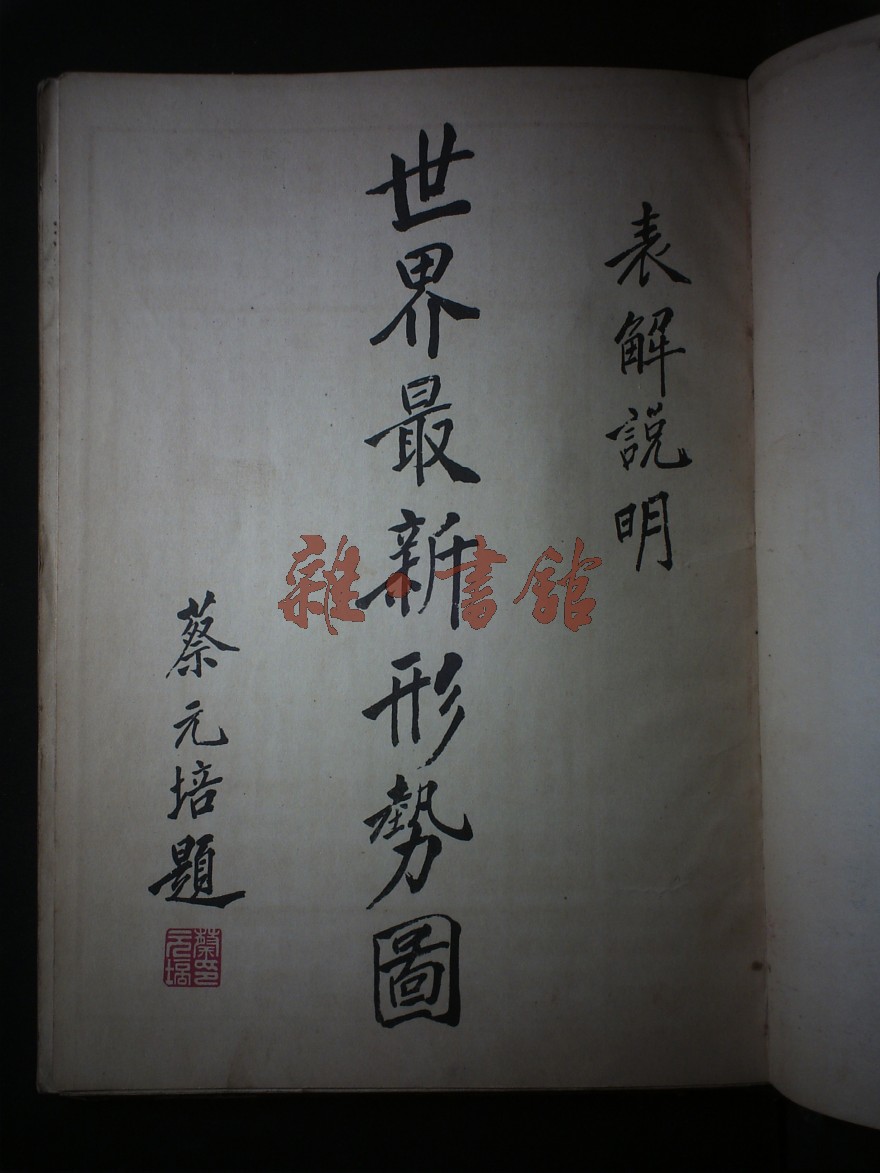 表解說明
世界最新形勢圖
蔡元培題
蔡元培印
雜·書館